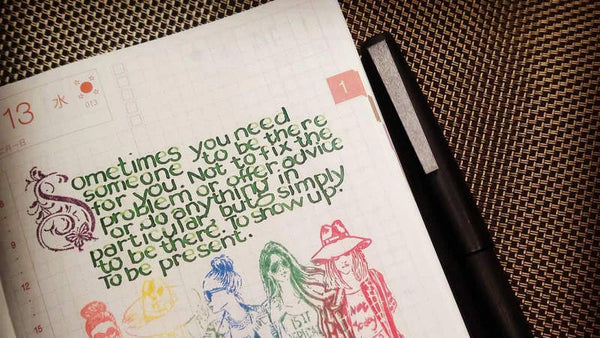 13 水
013
二月一日
1
Sometimes you need
someone to be there
for you. Not to fix the
problem or offer advice
or do anything in
particular, but simply
to be there. to show up.
To be present.
12
15